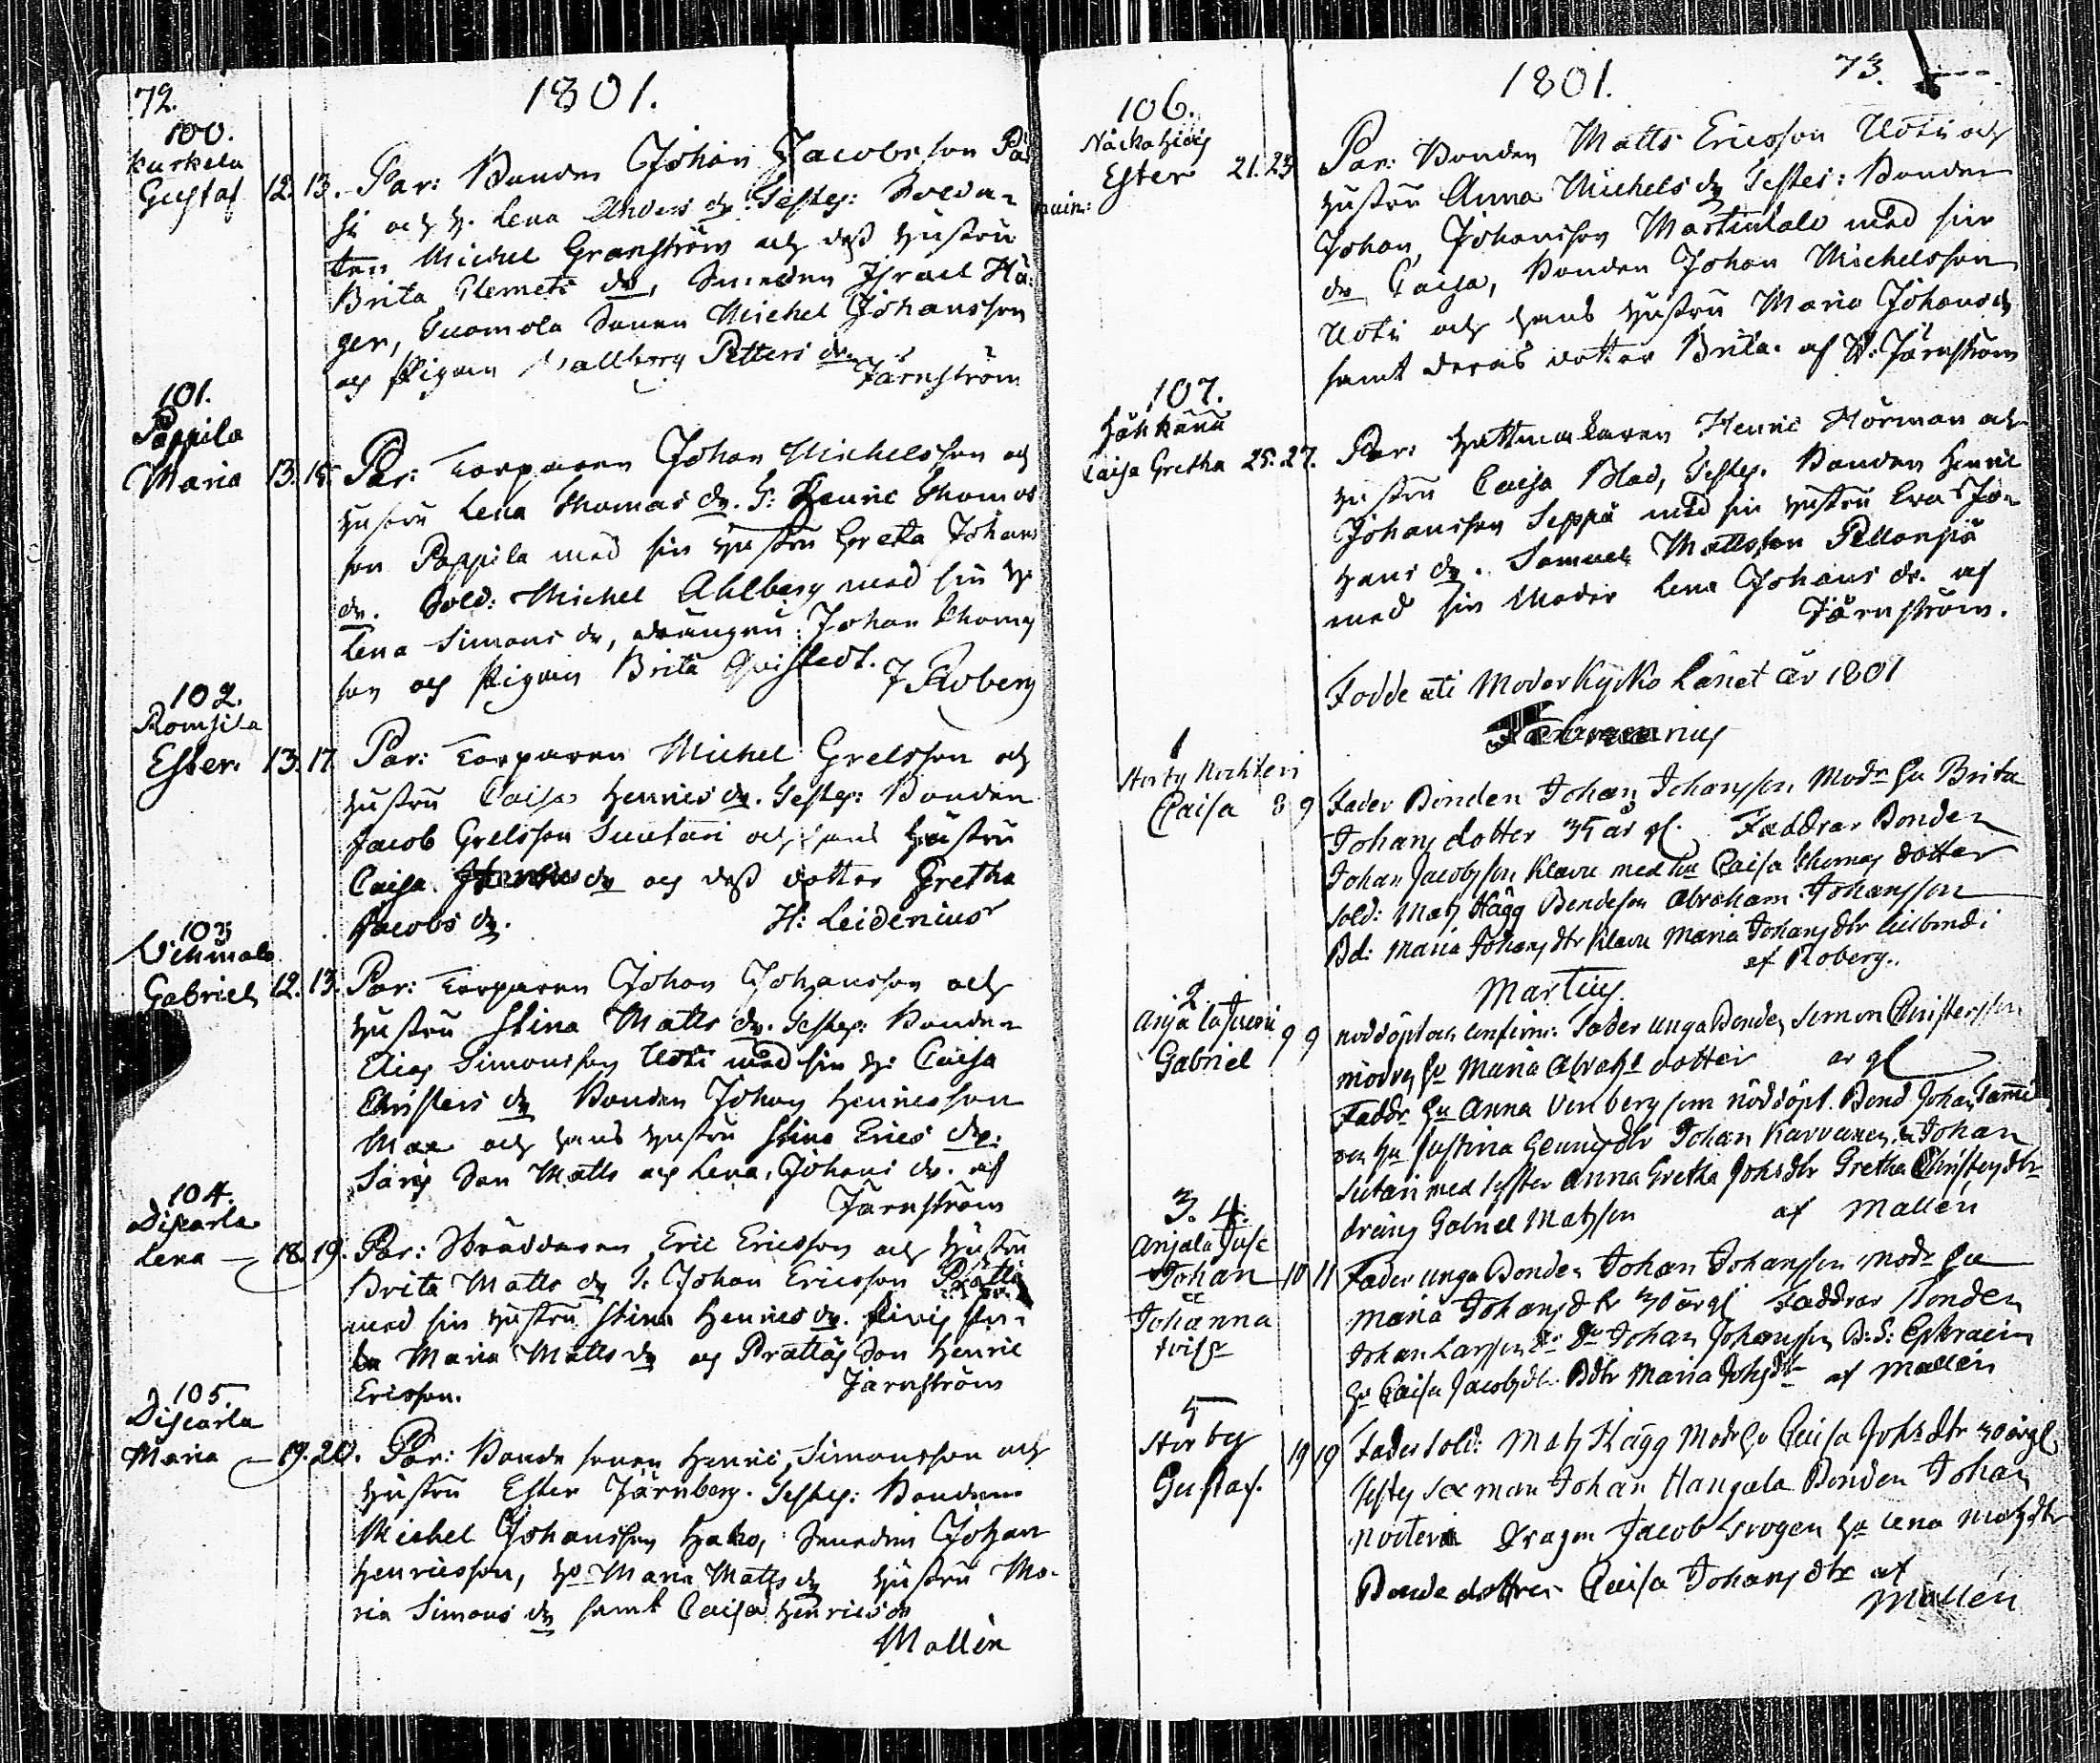 72.
1801.
100.
Kuskela
Gustaf 12. 13. Par: Bonden Johan Jacobsson Pa
si och h. Lena Anders dr. Testes: Solda-
ten Michel Granström och dess hustru
Brita Clemets dr, Smeden Israel Hä-
ger, Tuomola Sonen Michel Johansson
och Pigan Wallborg Petters dr.
Järnström
101.
Pappila
Maria 13. 15. Par: Torparen Johan Michelsson och
hustru Lena Thomas dr. T: Henric Thomas
son Pappila med sin hustru Greta Johans
dr. Sold: Michel Ahlberg med sin h.
Lena Simons dr, drängen Johan Thoms
son och Pigan Brita Qvistedt.
J Roberg
102.
Romsila
Ester. 13. 17. Par: Torparen Michel Grelsson och
hustru Caisa Henrics dr. Testes: Bonden
Jacob Grelsson Suutari och hans hustru
Caisa dr och dess dotter Gretha
Jacobs dr.
H: Leidenius
103
Gabriel 12. 13. Par: Torparen Johan Johansson och
hustru Stina Matts dr. Testes: Bonden
Elias Simonsson Uoti med sin h: Caisa
Christers dr Bonden Johan Henricsson
Max och hans hustru Stina Erics dr.
Son Matts och Lena Johans dr. af
Järnström
104.
Discarla
Lena — 18. 19. Par: Skräddaren Eric Ericsson och hustru
Brita Matts dr T. Johan Ericsson Prättä
med sin hustru Stina Henrics dr.
Maria Matts dr och Prattas Son Henric
Ericsson.
Järnström
105.
Discarla
Maria — 19. 20. Par: Bonde sonen Henric Simonsson och
hustru Ester Järnberg. Testes: Bonden
Michel Johansson Hako, Smeden Johan
Henricsson, hu Maria Matts dr hustru Ma-
ria Simons dr samt Caisa Henrics dr
Mallén
1801.
73.
106.
Ester 21. 23. Par: Bonden Matts Ericsson Uoti och
hustru Anna Michels dr Testes: Bonden
Johan Johansson Martinkalo med sin
dr Caisa, Bonden Johan Michelsson
Uoti och hans hustru Maria Johans dr
samt deras dotter Brita. af W. Järnström
107.
Caisa Gretha 25. 27. Par: Hattmakaren Henric Hörman och
hustru Caisa Blad, Testes. Bonden Henric
Johansson Seppä med sin hustru Eva Jo-
hans dr. Samuel Mattsson Pellonpä
med sin Moder Lena Johans dr. af
Järnström.
Födde uti Moder Kyrko Länet år 1801
Februarius
1
Storby Nochteri
Caisa 8 9 Fader Bonden Johan Johansson Modr hu Brita
Johans dotter 35 år gl. Faddrar Bonden
Johan Jacobsson Klavu med hu Caisa Thomas dotter
Sold: Mats Hägg Bondeson Abraham Johansson
Bd: Maria Johans dtr Klavu Maria Johans dtr
af Roberg.
Martius
2
Gabriel 9 9 nöddöpt och confirm: Fader unga Bonden Simon Christersson
modren hu Maria Abrahs dotter år gl
Faddr hu Anna Venberg som nöddöpt. Bond Johan
hu Justina Hennrsdtr Johan Karvanen Johan
Sutari med syster Anna Gretha Johsdtr Gretha Christersdtr
dräng Gabriel Matsson af Mallén
3. 4.
Anjala Juse
Johan 10 11
et
Johanna
tvil:gr
Fader unga Bonden Johan Johansson Modr hu
Maria Johans dtr 30 år gl Faddrar Bonden
Johan Larsson Johan Johansson B: S: Ephraim
hu Caisa Jacobs dtr Bdtr Maria Johs dtr af Mallén
5
Storby
Gustaf. 19 19 Fader sold: Mats Hägg Modr hu Caisa Johs dtr 30 år gl
Testes Sexman Johan Hangala Bonden Johan
Nochteri Dragon Jacob Krogen hu Lena Mats dtr
Bonde dotter Caisa Johans dtr af
Mallén